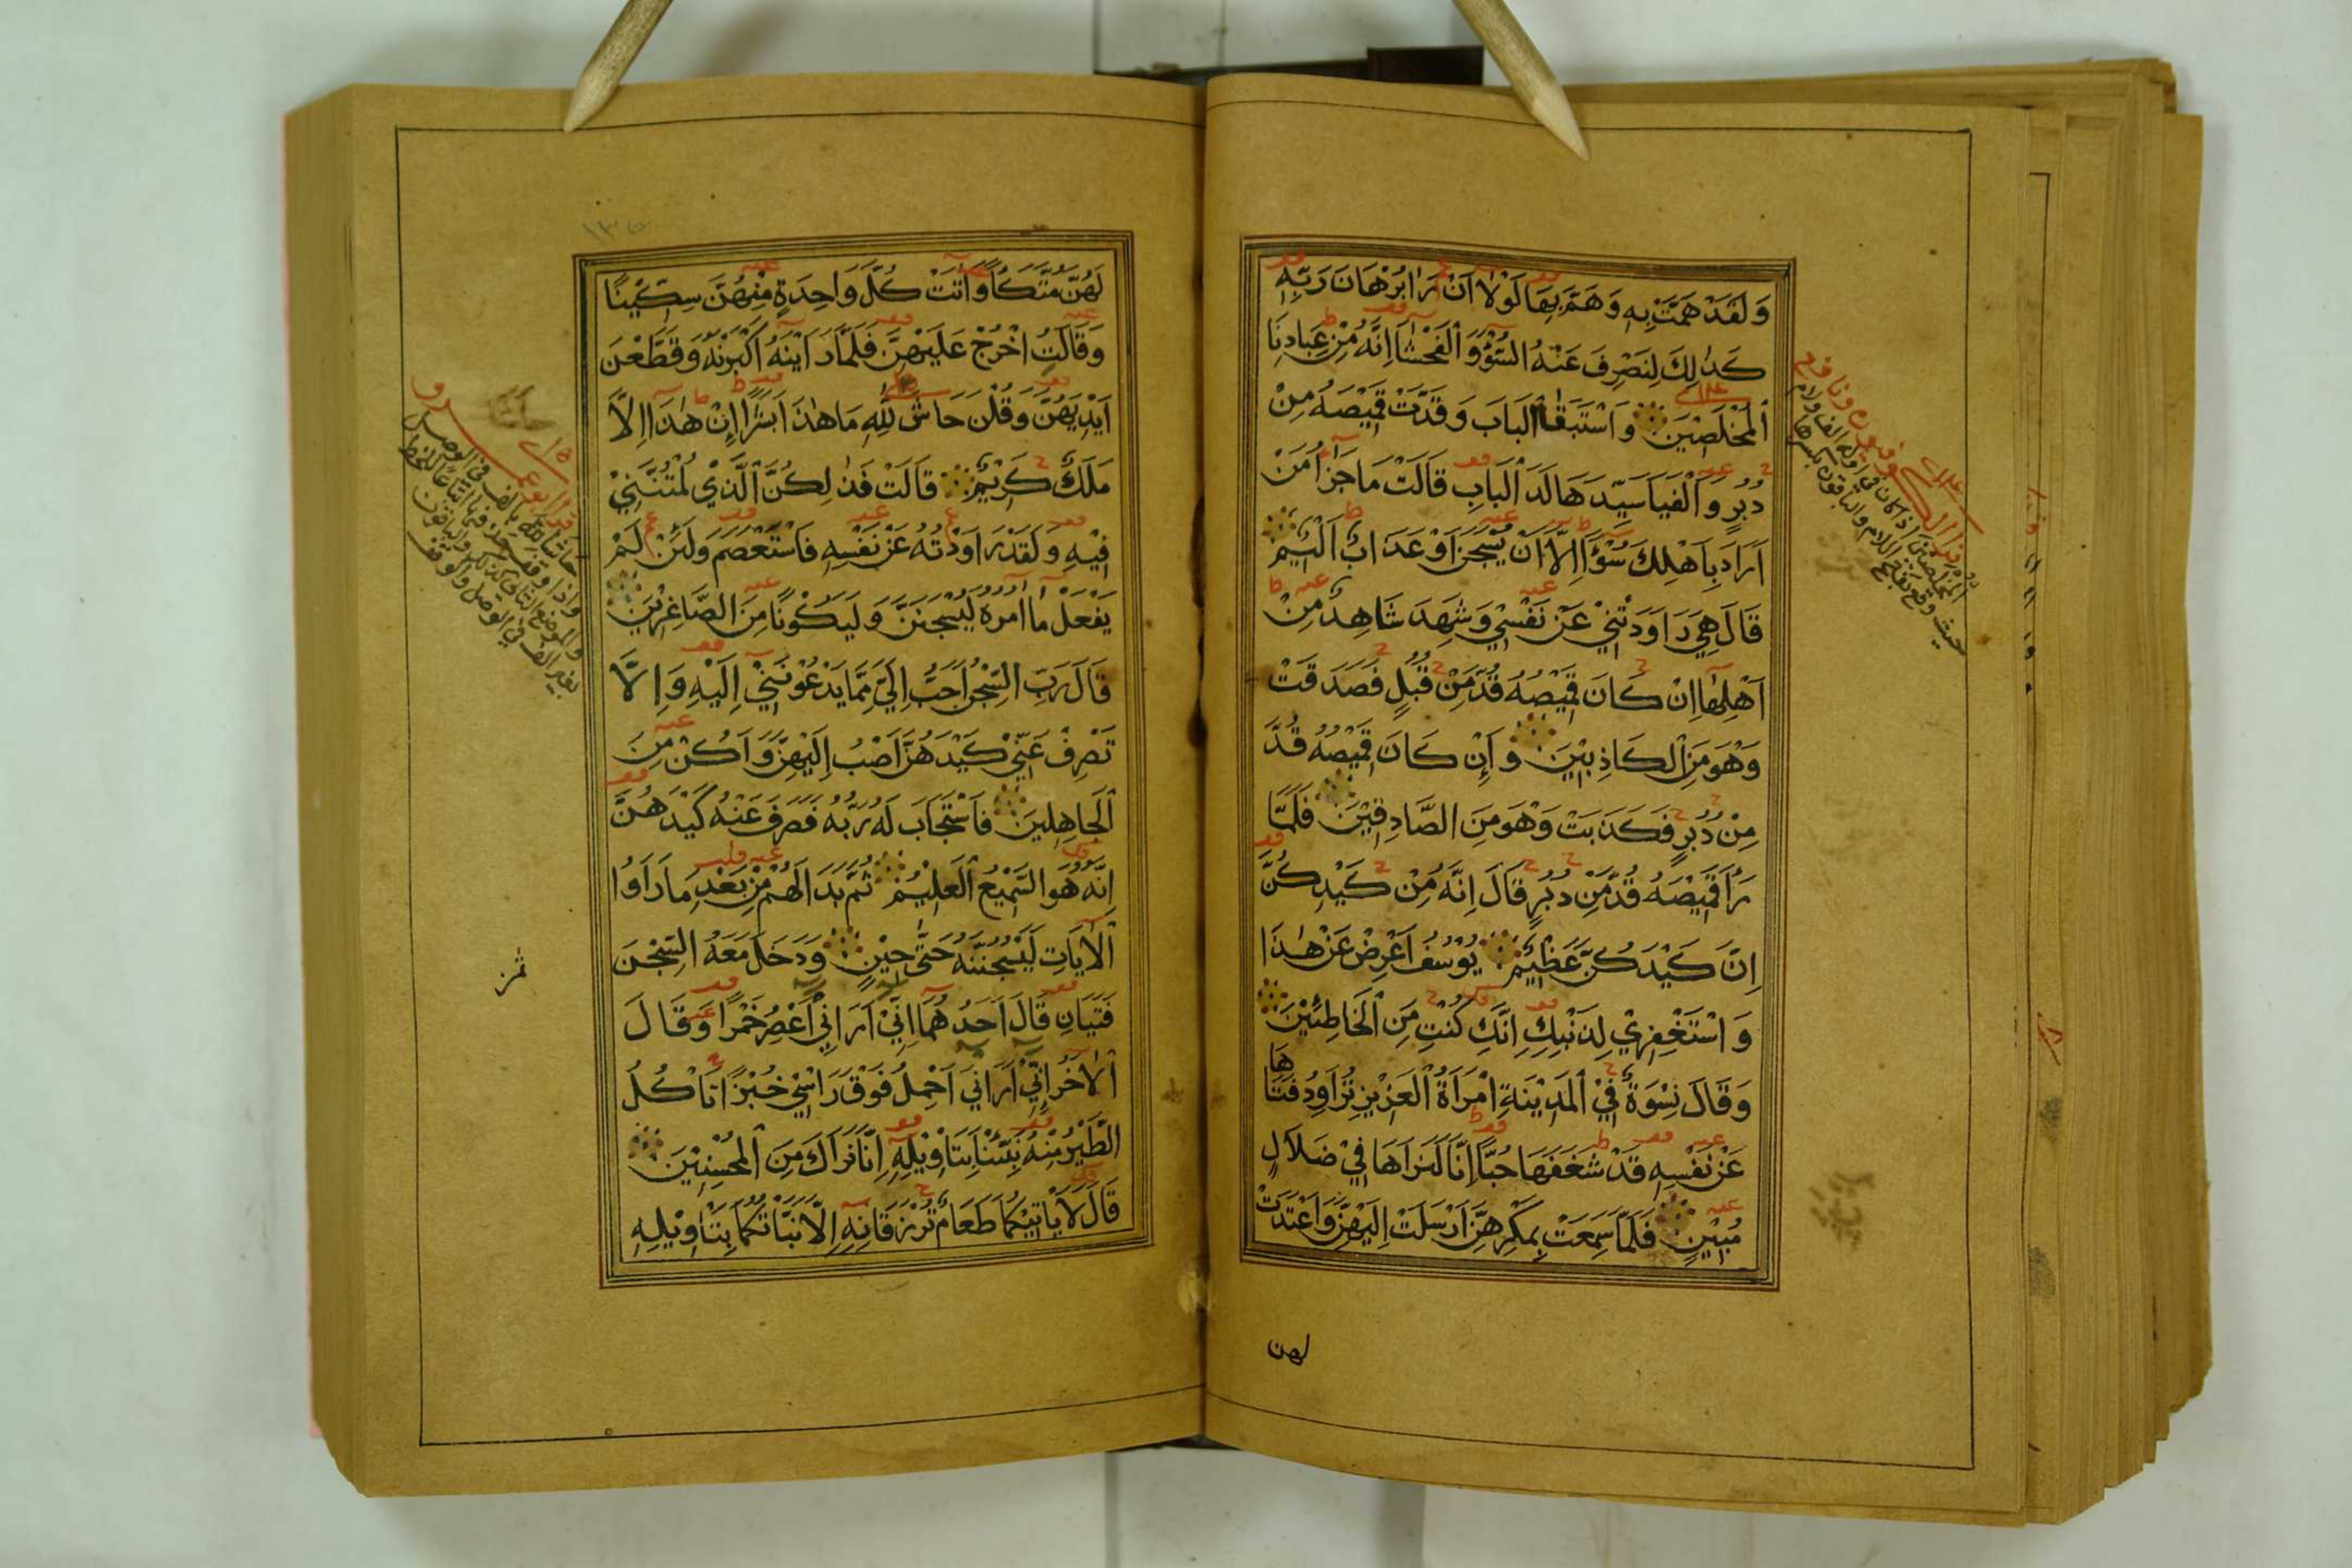 وَلَقَدْ هَمَّتْ بِهِ وَهَمَّ بِهَا لَوْلَا اَنْ رَاٰ بُرْهَانَ رَبِّهِ
كَذٰلِكَ لِنَصْرِفَ عَنْهُ السُّوْٓءَ وَالْفَحْشَآ اِنَّهُ مِنْ عِبَادِنَا
الْمُخْلَصِيْنَ وَاسْتَبَقَا الْبَابَ وَقَدَّتْ قَمِيْصَهُ مِنْ
دُبُرٍ وَاَلْفَيَا سَيِّدَهَا لَدَ الْبَابِ قَالَتْ مَا جَزَآءُ مَنْ
اَرَادَ بِاَهْلِكَ سُوْٓءًا اِلَّا اَنْ يُسْجَنَ اَوْ عَذَابٌ اَلِيْمٌ
قَالَ هِيَ رَاوَدَتْنِيْ عَنْ نَفْسِيْ وَشَهِدَ شَاهِدٌ مِنْ
اَهْلِهَا اِنْ كَانَ قَمِيْصُهُ قُدَّ مِنْ قُبُلٍ فَصَدَقَتْ
وَهُوَ مِنَ الْكَاذِبِيْنَ وَاِنْ كَانَ قَمِيْصُهُ قُدَّ
مِنْ دُبُرٍ فَكَذَبَتْ وَهُوَ مِنَ الصَّادِقِيْنَ فَلَمَّا
رَاٰ قَمِيْصَهُ قُدَّ مِنْ دُبُرٍ قَالَ اِنَّهُ مِنْ كَيْدِكُنَّ
اِنَّ كَيْدَكُنَّ عَظِيْمٌ يُوْسُفُ اَعْرِضْ عَنْ هٰذَا
وَاسْتَغْفِرِيْ لِذَنْبِكِ اِنَّكِ كُنْتِ مِنَ الْخَاطِئِيْنَ
وَقَالَ نِسْوَةٌ فِيْ الْمَدِيْنَةِ امْرَاَةُ الْعَزِيْزِ تُرَاوِدُ فَتَاهَا
عَنْ نَفْسِهِ قَدْ شَغَفَهَا حُبًّا اِنَّا لَنَرَاهَا فِيْ ضَلَالٍ
مُبِيْنٍ فَلَمَّا سَمِعَتْ بِمَكْرِهِنَّ اَرْسَلَتْ اِلَيْهِنَّ وَاَعْتَدَتْ
لهن
لَهُنَّ مُتَّكَاً وَاٰتَتْ كُلَّ وَاحِدَةٍ مِنْهُنَّ سِكِّيْنًا
وَقَالَتِ اخْرُجْ عَلَيْهِنَّ فَلَمَّا رَاَيْنَهُ اَكْبَرْنَهُ وَقَطَّعْنَ
اَيْدِيَهُنَّ وَقُلْنَ حَاشَ لِلّٰهِ مَا هٰذَا بَشَرًا اِنْ هٰذَا اِلَّا
مَلَكٌ كَرِيْمٌ قَالَتْ فَذٰلِكُنَّ الَّذِيْ لُمْتُنَّنِيْ
فِيْهِ وَلَقَدْ رَاوَدْتُهُ عَنْ نَفْسِهِ فَاسْتَعْصَمَ وَلَئِنْ لَمْ
يَفْعَلْ مَا اٰمُرُهُ لَيُسْجَنَنَّ وَلَيَكُوْنًا مِنَ الصَّاغِرِيْنَ
قَالَ رَبِّ السِّجْنُ اَحَبُّ اِلَيَّ مِمَّا يَدْعُوْنَنِيْ اِلَيْهِ وَاِلَّا
تَصْرِفْ عَنِّيْ كَيْدَهُنَّ اَصْبُ اِلَيْهِنَّ وَاَكُنْ مِنَ
الْجَاهِلِيْنَ فَاسْتَجَابَ لَهُ رَبُّهُ فَصَرَفَ عَنْهُ كَيْدَهُنَّ
اِنَّهُ هُوَ السَّمِيْعُ الْعَلِيْمُ ثُمَّ بَدَا لَهُمْ مِنْ بَعْدِ مَا رَاَوُا
الْاٰيَاتِ لَيَسْجُنُنَّهُ حَتّٰى حِيْنٍ وَدَخَلَ مَعَهُ السِّجْنَ
فَتَيَانِ قَالَ اَحَدُهُمَا اِنِّيْ اَرَانِيْ اَعْصِرُ خَمْرًا وَقَالَ
الْاٰخَرُ اِنِّيْ اَرَانِيْ اَحْمِلُ فَوْقَ رَاْسِيْ خُبْزًا تَاْكُلُ
الطَّيْرُ مِنْهُ نَبِّئْنَا بِتَاْوِيْلِهِ اِنَّا نَرَاكَ مِنَ الْمُحْسِنِيْنَ
قَالَ لَا يَاْتِيْكُمَا طَعَامٌ تُرْزَقَانِهِ اِلَّا نَبَّاْتُكُمَا بِتَاْوِيْلِهِ